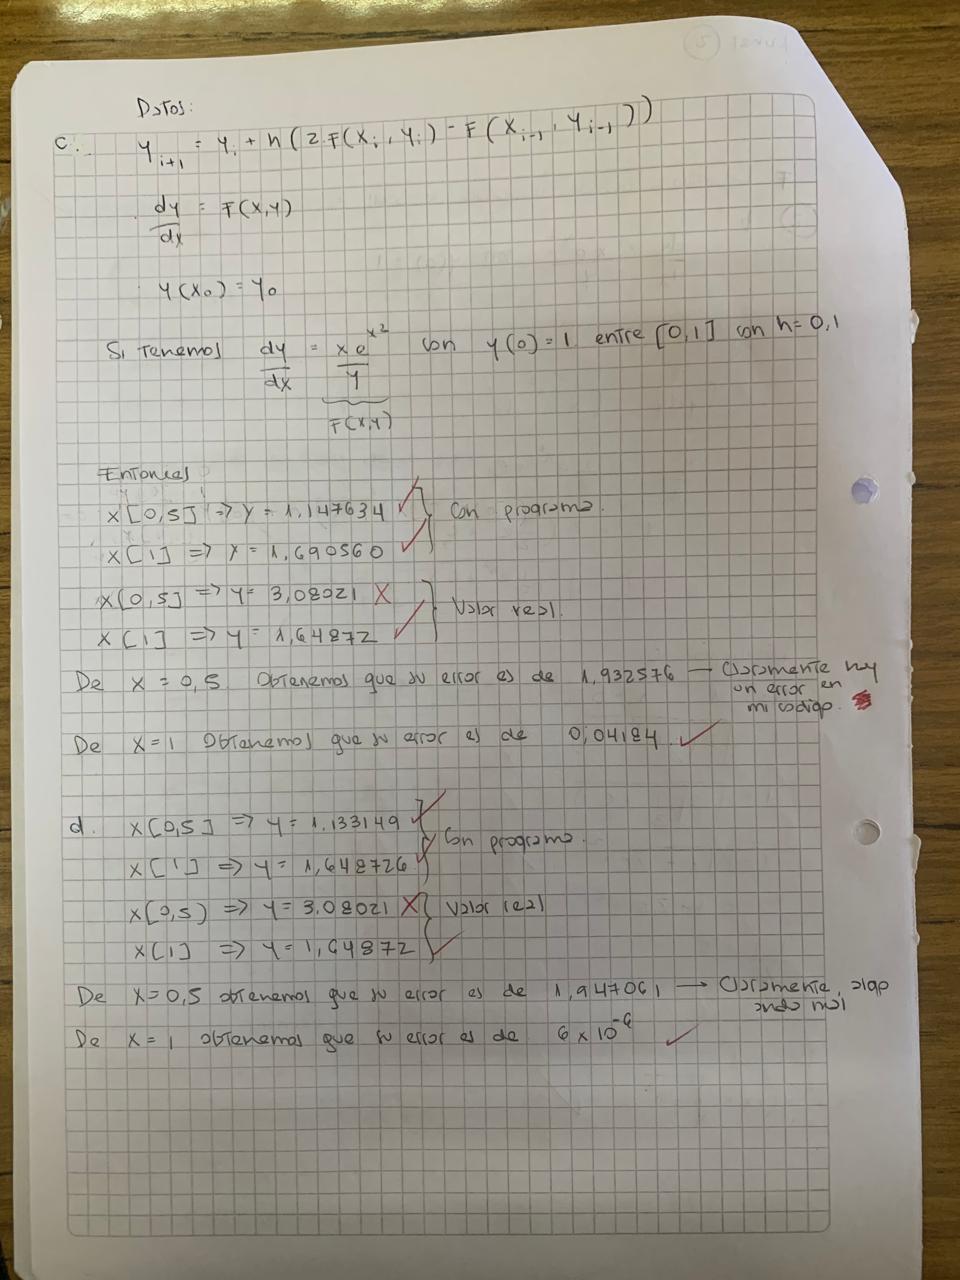 Datos:
c. Y_{i+1} = Y_i + h(2F(X_i, Y_i) - F(X_{i-1}, Y_{i-1}))
dy/dx = F(X,Y)
Y(X_0) = Y_0
Si tenemos dy/dx = x e^{x^2}/Y con y(0)=1 entre [0,1] con h=0,1
F(X,Y)
Entonces
X[0,5] => Y = 1,147634 ✓
con programa.
X[1] => Y = 1,690560 ✓
X[0,5] => Y = 3,08021 X
Valor real.
X[1] => Y = 1,64872 ✓
De X = 0,5 obtenemos que su error es de 1,932576 → Claramente hay
un error en
mi codigo.
De X=1 obtenemos que su error es de 0,04184. ✓
d. X[0,5] => Y = 1.133149 ✓
Con programa.
X[1] => Y = 1,648726 ✓
X[0,5) => Y = 3,08021 X
Valor real
X[1] => Y = 1,64872 ✓
De X=0,5 obtenemos que su error es de 1,947061 → Claramente, algo
anda mal
De X=1 obtenemos que su error es de 6 x 10^{-6} ✓